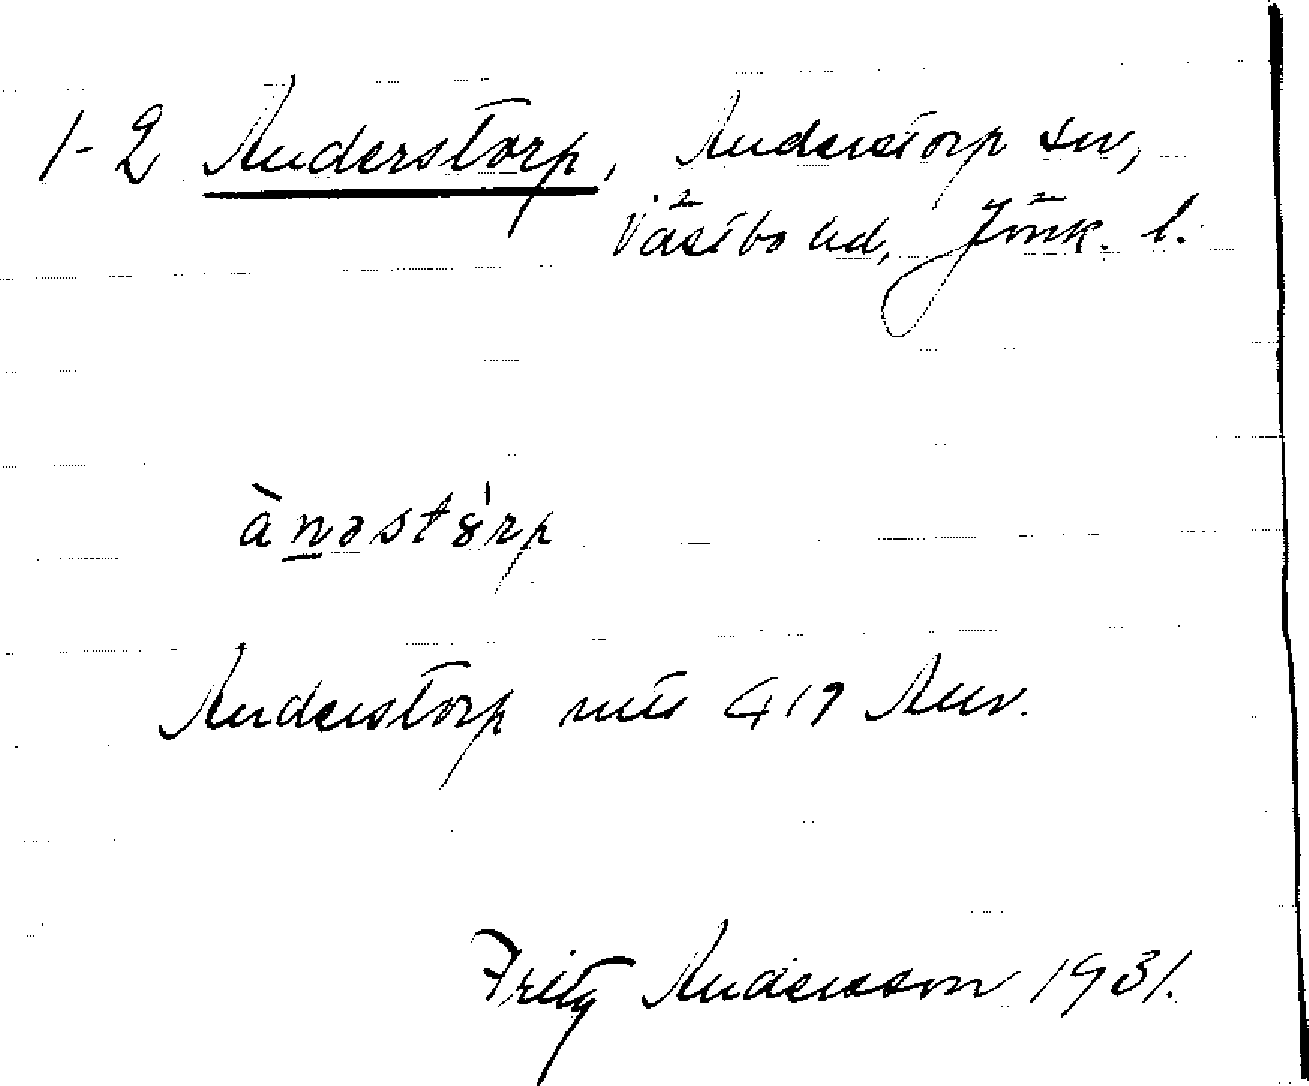 1-2 Anderstorp, Anderstorp sn,
Västbo hd, Jönk. l.
ànəstórp
Anderstorp
Fritz Andersson 1931.